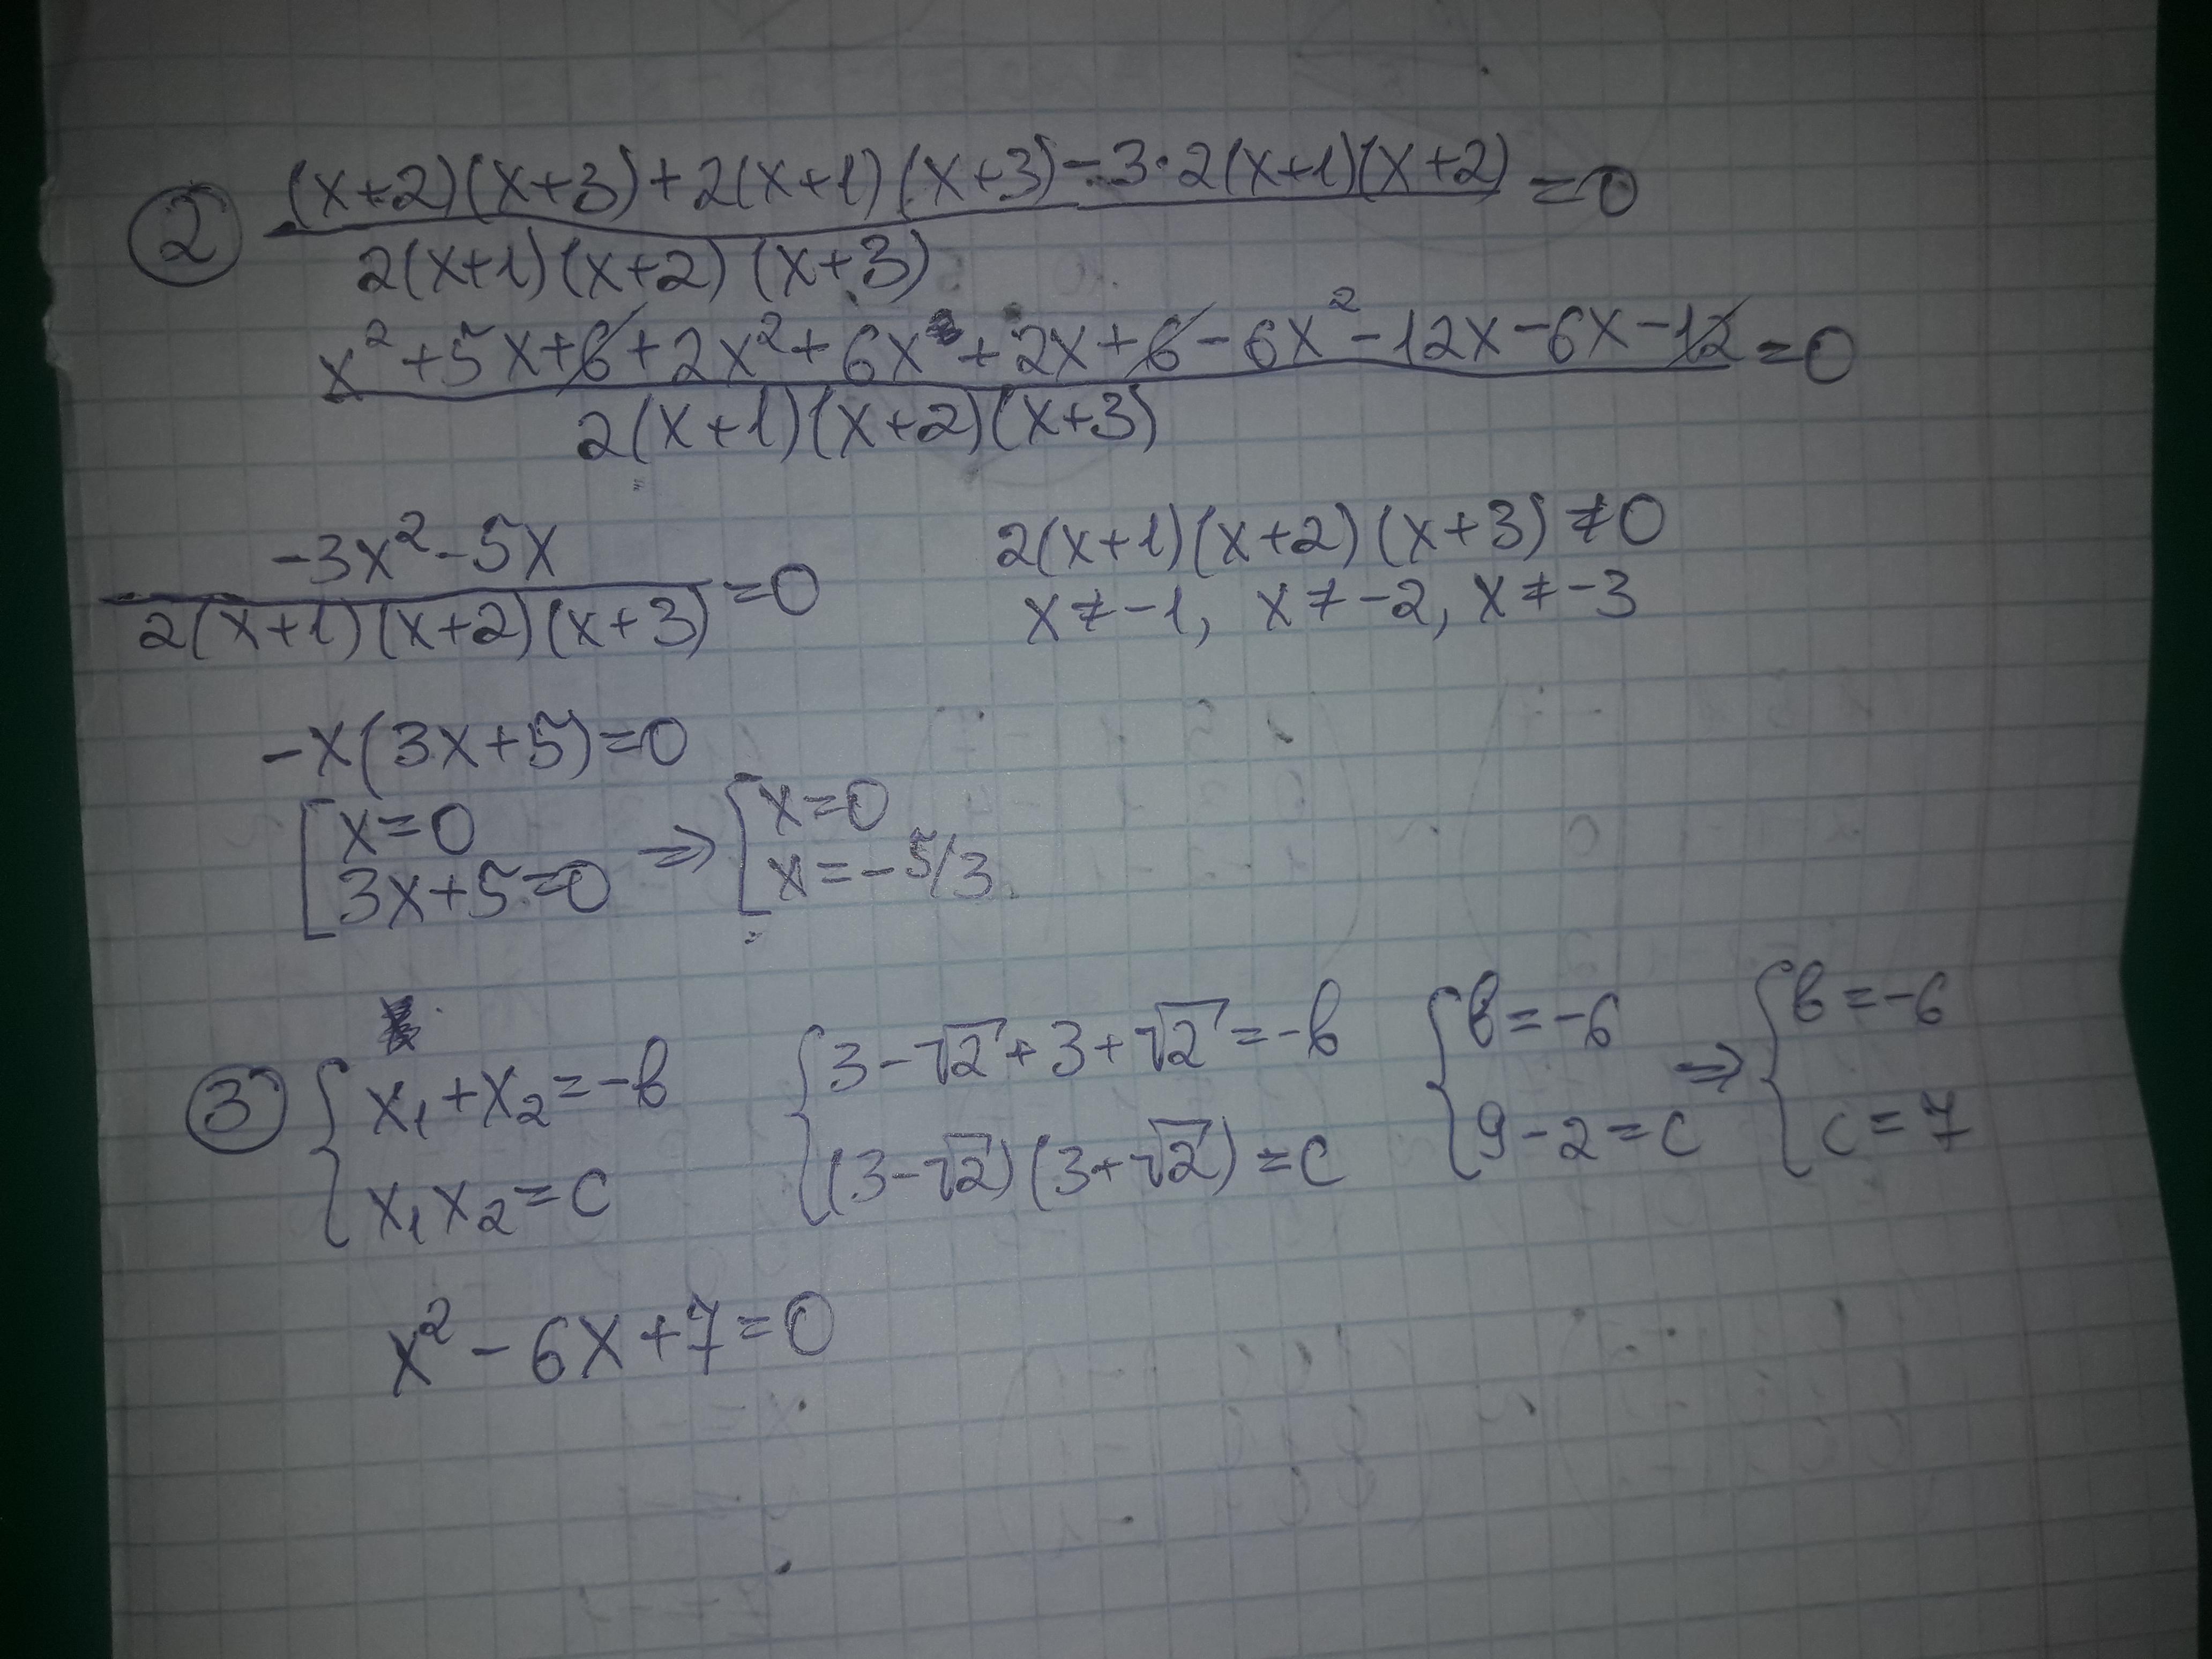 ② (x+2)(x+3)+2(x+1)(x+3)-3·2(x+1)(x+2) / 2(x+1)(x+2)(x+3) =0
x²+5x+6+2x²+6x+2x+6-6x²-12x-6x-12 / 2(x+1)(x+2)(x+3) =0
-3x²-5x / 2(x+1)(x+2)(x+3) =0
2(x+1)(x+2)(x+3)≠0
x≠-1, x≠-2, x≠-3
-x(3x+5)=0
[x=0
3x+5=0
⇒ [x=0
x=-5/3
③ {x₁+x₂=-b
x₁x₂=c
{3-√2+3+√2=-b
(3-√2)(3+√2)=c
{b=-6
9-2=c
⇒ {b=-6
c=7
x²-6x+7=0